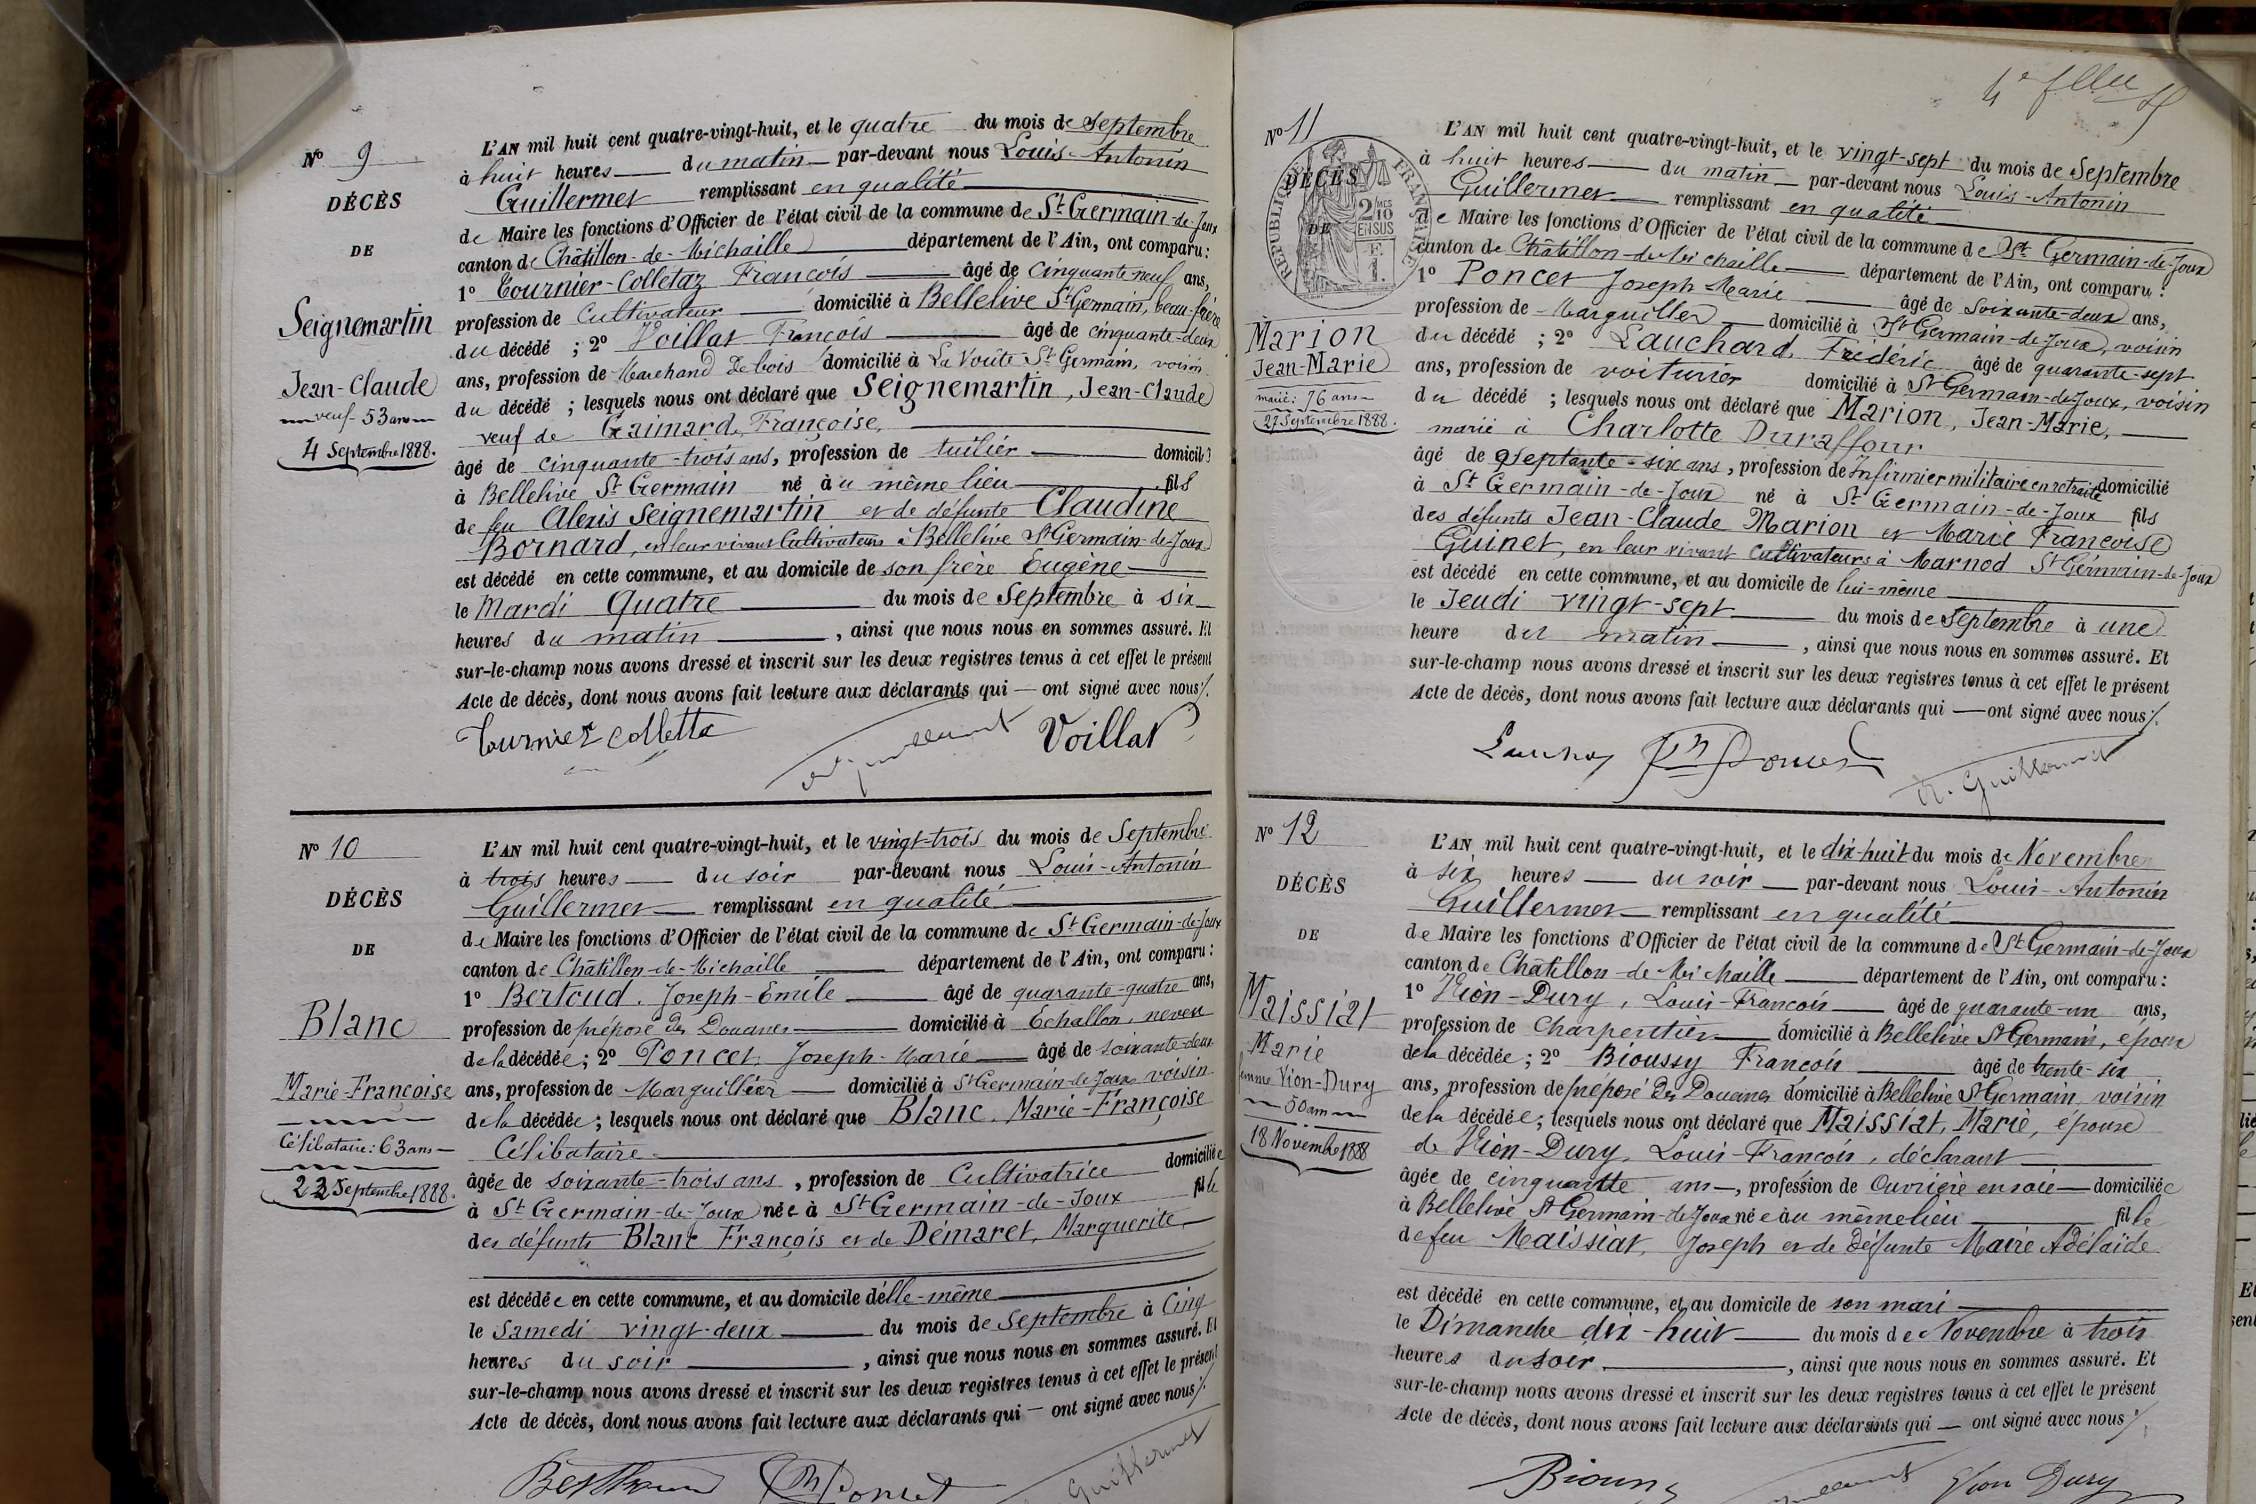 Nº 9
DÉCÈS
DE
Seignemartin
Jean-Claude
veuf - 53 ans
4 Septembre 1888.
L'AN mil huit cent quatre-vingt-huit, et le quatre du mois de Septembre
à huit heures du matin par-devant nous Louis-Antonin
Guillermet remplissant en qualité
de Maire les fonctions d'Officier de l'état civil de la commune de St Germain-de-Joux
canton de Châtillon-de-Michaille département de l'Ain, ont comparu :
1º Tournier-Colletaz François âgé de cinquante neuf ans,
profession de Cultivateur domicilié à Bellelive St Germain, beau-frère
du décédé ; 2º Voillat François âgé de cinquante-deux
ans, profession de Marchand de bois domicilié à La Voûte St Germain, voisin
du décédé ; lesquels nous ont déclaré que Seignemartin, Jean-Claude
veuf de Gaimard, Françoise,
âgé de cinquante-trois ans, profession de tuilier domicilié
à Bellelive St Germain né au même lieu fils
de feu Alexis Seignemartin et de défunte Claudine
Bornard, en leur vivant Cultivateurs à Bellelive St Germain-de-Joux
est décédé en cette commune, et au domicile de son frère Eugène
le Mardi Quatre du mois de Septembre à six
heures du matin , ainsi que nous nous en sommes assuré. Et
sur-le-champ nous avons dressé et inscrit sur les deux registres tenus à cet effet le présent
Acte de décès, dont nous avons fait lecture aux déclarants qui — ont signé avec nous ./.
Tournier colletta Guillermet Voillat
Nº 10
DÉCÈS
DE
Blanc
Marie-Françoise
Célibataire : 63 ans
22 Septembre 1888.
L'AN mil huit cent quatre-vingt-huit, et le vingt-trois du mois de Septembre
à trois heures du soir par-devant nous Louis-Antonin
Guillermet remplissant en qualité
de Maire les fonctions d'Officier de l'état civil de la commune de St Germain-de-Joux
canton de Châtillon-de-Michaille département de l'Ain, ont comparu :
1º Bertoud, Joseph-Emile âgé de quarante-quatre ans,
profession de préposé des Douanes domicilié à Echallon, neveu
de la décédée ; 2º Poncet, Joseph-Marie âgé de soixante-deux
ans, profession de Marguillier domicilié à St Germain-de-Joux voisin
de la décédée ; lesquels nous ont déclaré que Blanc, Marie-Françoise
Célibataire
âgée de soixante-trois ans, profession de Cultivatrice domiciliée
à St Germain-de-Joux née à St Germain-de-Joux fille
des défunts Blanc François et de Démaret, Marguerite
est décédée en cette commune, et au domicile d'elle-même
le Samedi vingt-deux du mois de Septembre à Cinq
heures du soir , ainsi que nous nous en sommes assuré. Et
sur-le-champ nous avons dressé et inscrit sur les deux registres tenus à cet effet le présent
Acte de décès, dont nous avons fait lecture aux déclarants qui — ont signé avec nous ./.
Poncet Guillermet
Nº 11
DÉCÈS
DE
RÉPUBLIQUE FRANÇAISE
2 MES
10
EN SUS
F.
1.
Marion
Jean-Marie
marié : 76 ans
27 Septembre 1888.
L'AN mil huit cent quatre-vingt-huit, et le vingt-sept du mois de Septembre
à huit heures du matin par-devant nous Louis-Antonin
Guillermet remplissant en qualité
de Maire les fonctions d'Officier de l'état civil de la commune de St Germain-de-Joux
canton de Châtillon-de-Michaille département de l'Ain, ont comparu :
1º Poncet Joseph Marie âgé de soixante-deux ans,
profession de Marguiller domicilié à St Germain-de-Joux, voisin
du décédé ; 2º Lauchard, Frédéric âgé de quarante-sept
ans, profession de voiturier domicilié à St Germain-de-Joux, voisin
du décédé ; lesquels nous ont déclaré que Marion, Jean-Marie,
marié à Charlotte Duraffour
âgé de septante-six ans, profession de Infirmier militaire en retraite domicilié
à St Germain-de-Joux né à St Germain-de-Joux fils
des défunts Jean-Claude Marion et Marie Françoise
Guinet, en leur vivant cultivateurs à Marnod St Germain-de-Joux
est décédé en cette commune, et au domicile de lui-même
le Jeudi vingt-sept du mois de Septembre à une
heure du matin , ainsi que nous nous en sommes assuré. Et
sur-le-champ nous avons dressé et inscrit sur les deux registres tenus à cet effet le présent
Acte de décès, dont nous avons fait lecture aux déclarants qui — ont signé avec nous ./.
Poncet A. Guillermet
Nº 12
DÉCÈS
DE
Maissiat
Marie
femme Vion-Dury
50 ans
18 Novembre 1888
L'AN mil huit cent quatre-vingt-huit, et le dix-huit du mois de Novembre
à six heures du soir par-devant nous Louis-Antonin
Guillermet remplissant en qualité
de Maire les fonctions d'Officier de l'état civil de la commune de St Germain-de-Joux
canton de Châtillon-de-Michaille département de l'Ain, ont comparu :
1º Vion-Dury, Louis-François âgé de quarante-un ans,
profession de Charpentier domicilié à Bellelive St Germain, époux
de la décédée ; 2º Bioussy François âgé de trente-six
ans, profession de préposé des Douanes domicilié à Bellelive St Germain, voisin
de la décédée ; lesquels nous ont déclaré que Maissiat, Marie, épouse
de Vion-Dury, Louis-François, déclarant
âgée de cinquante ans, profession de Ouvrière en soie domiciliée
à Bellelive St Germain-de-Joux née au même lieu fille
de feu Maissiat, Joseph et de défunte Marie Adélaïde
est décédé en cette commune, et au domicile de son mari
le Dimanche dix-huit du mois de Novembre à trois
heures du soir , ainsi que nous nous en sommes assuré. Et
sur-le-champ nous avons dressé et inscrit sur les deux registres tenus à cet effet le présent
Acte de décès, dont nous avons fait lecture aux déclarants qui — ont signé avec nous ./.
Vion Dury